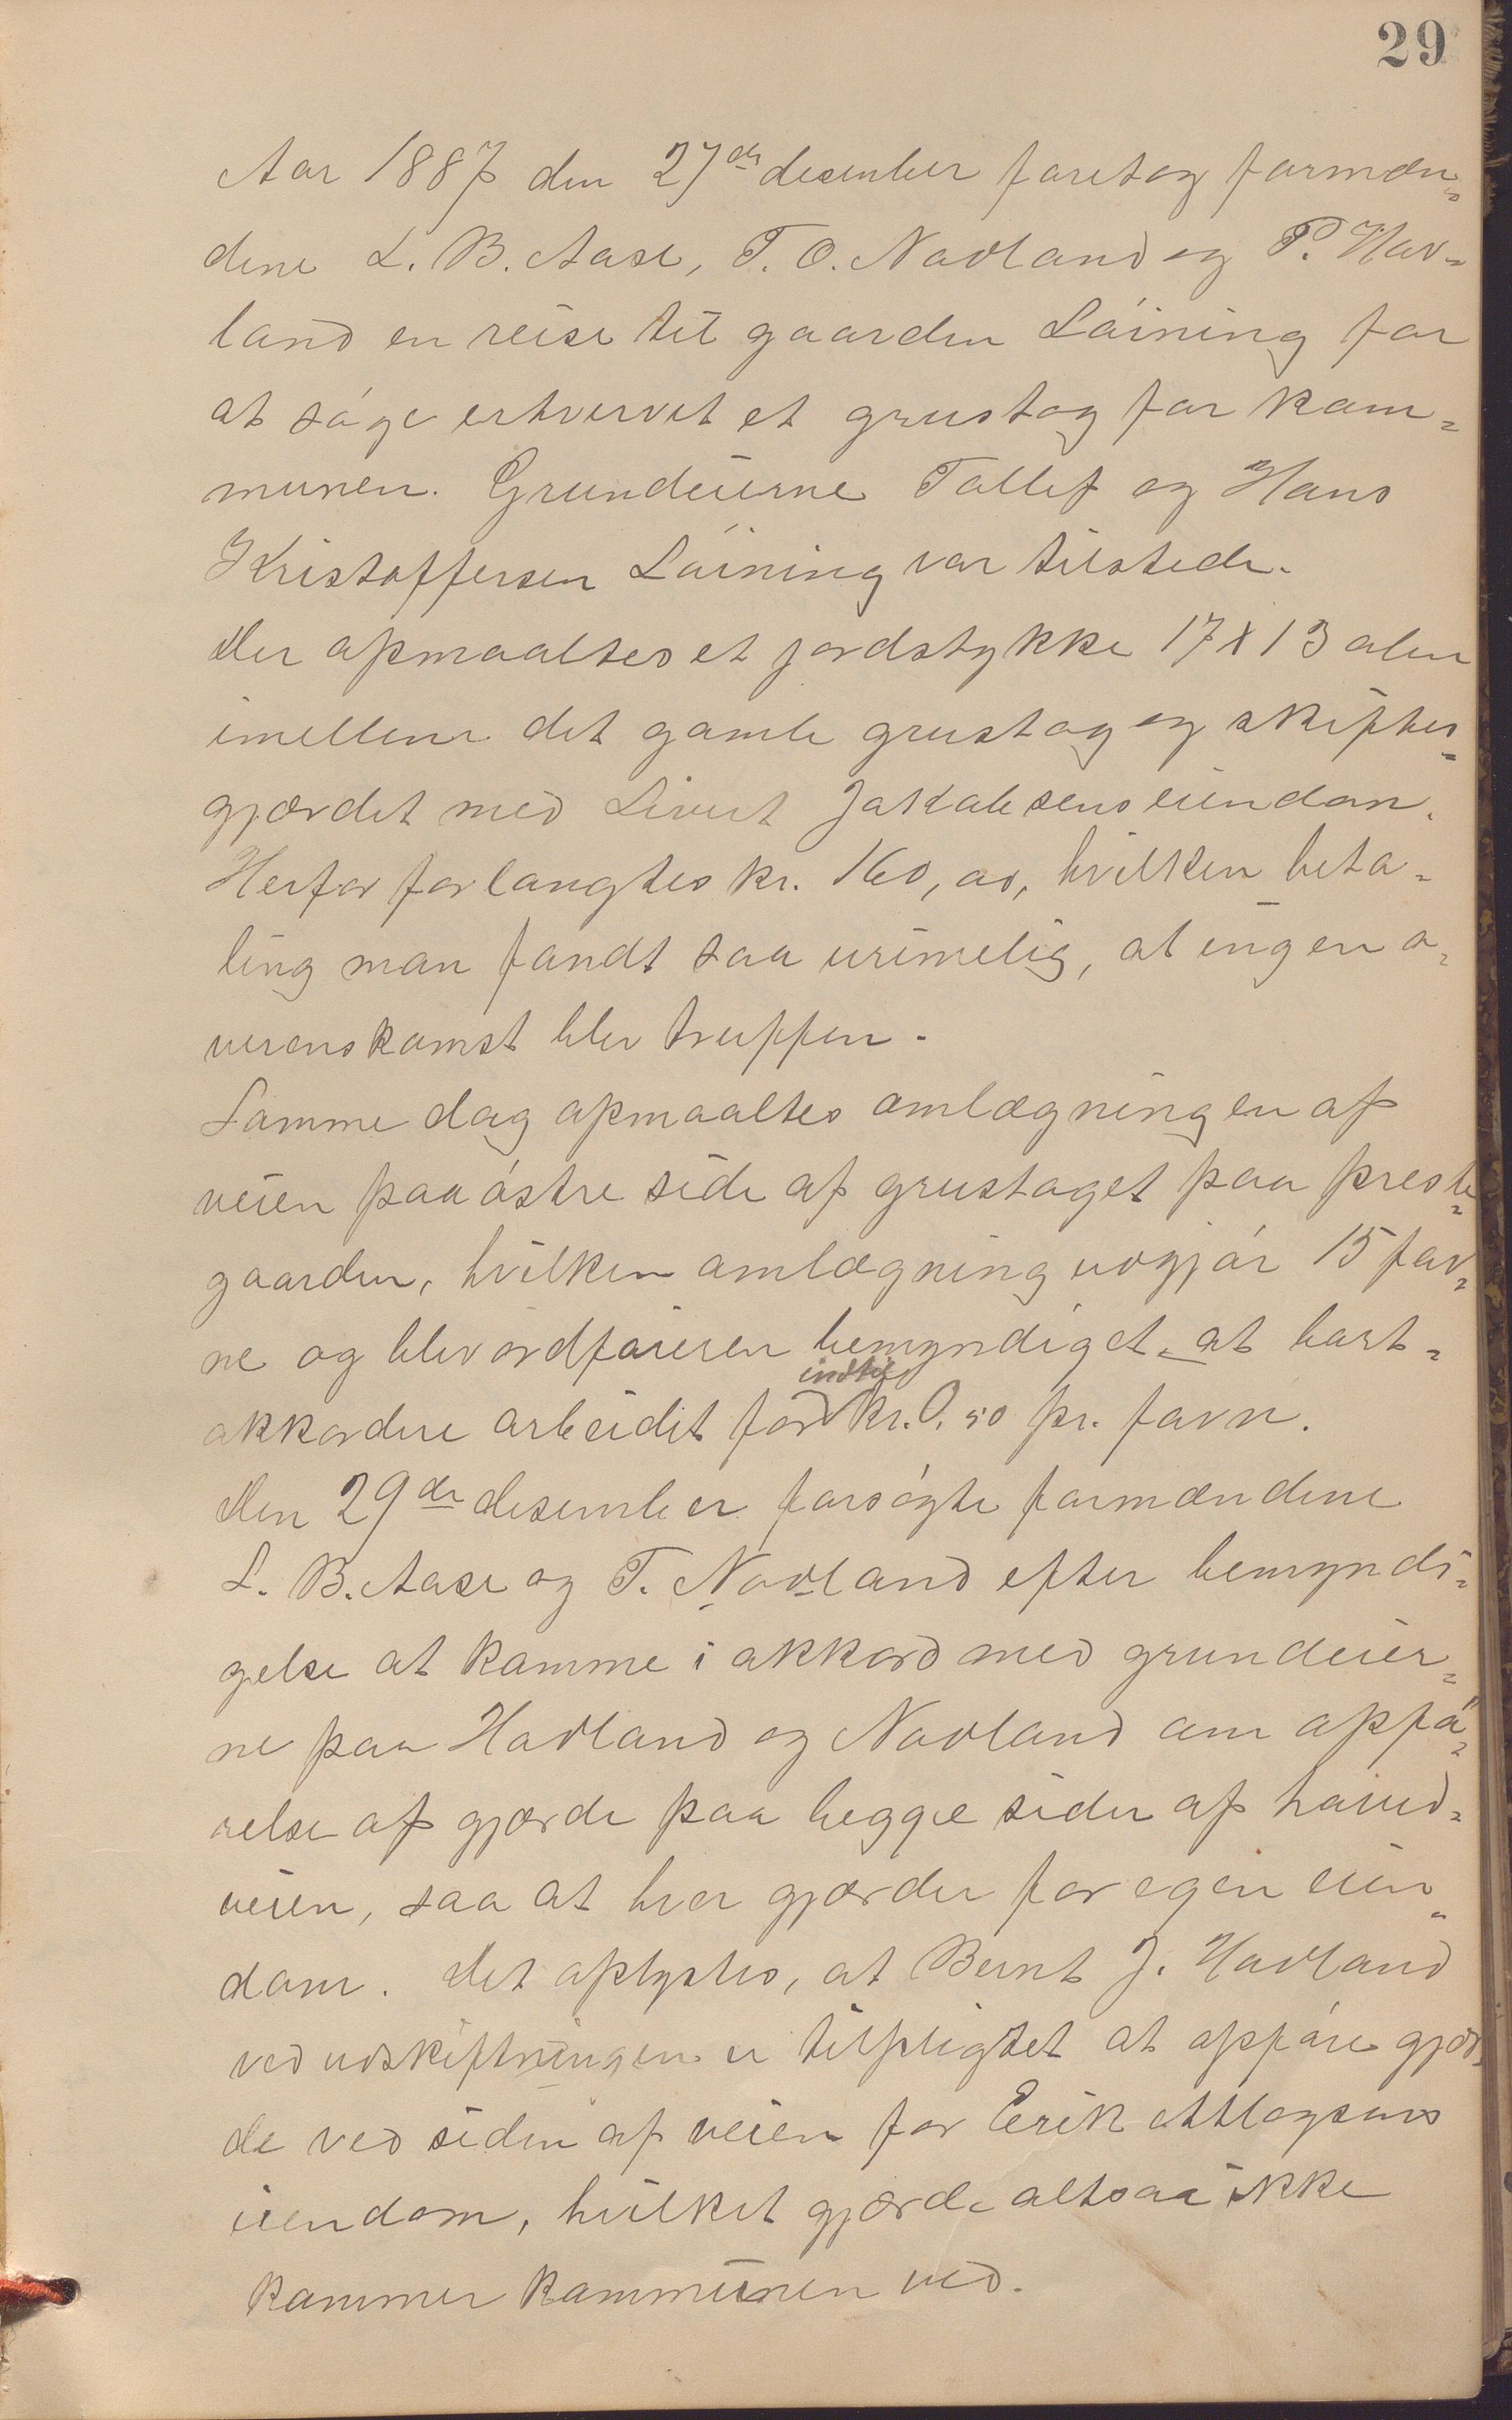 29
Aar 1887 den 27de desember foretog formæn-
dene L. B. Aase, T. O. Navland og P. Hav-
land en reise til gaarden Löining for
at söge erhvervet et grustag for kom-
munen. Grundeierne Tollef og Hans
Kristoffersen Löining var tilstede.
Der opmaaltes et jordstykke 17 x 13 alen
imellem det gamle grustag og skiftes-
gjærdet med Sivert Jakobsens eiendom.
Herfor forlangtes kr. 160,00, hvilken beta-
ling man fandt saa urimelig, at ingen o-
verenskomst blev truffen.
Samme dag opmaaltes omlægningen af
veien paa östre side af grustaget paa preste-
gaarden, hvilken omlægning udgjör 15 fav-
ne og blev ordföreren bemyndiget at bort-
indtil
akkordere arbeidet for kr. 0,50 pr. favn.
Den 29de desember forsögte formændene
L. B. Aase og T. Navland efter bemyndi-
gelse at komme i akkord med grundeier-
ne paa Havland og Navland om opfö-
relse af gjærde paa begge sider af hoved-
veien, saa at hver gjærder for egen eien-
dom. Det oplystes, at Bernt J. Havland
ved udskiftningen er tilpligtet at opföre gjær-
de ved siden af veien for Erik Atlagsens
eiendom, hvilket gjærde altsaa ikke
kommer kommunen ved.